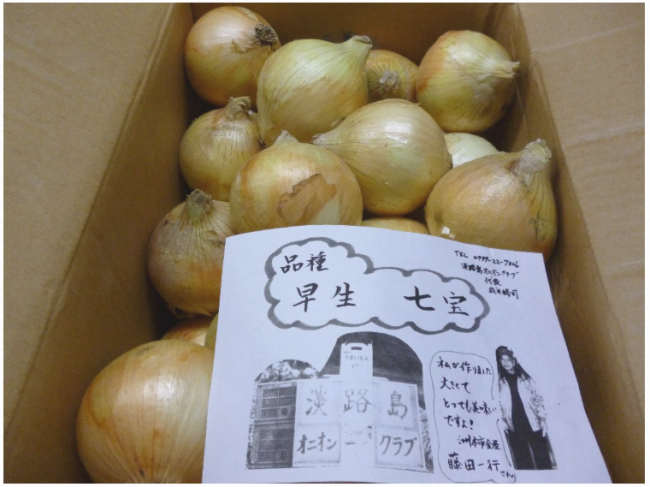 品種
早生 七宝
淡路島
オニオン クラブ
淡路島オニオンクラブ
代表
私が作りました
大きくて
とっても美味い
ですよ!
洲本市金屋
藤田一行